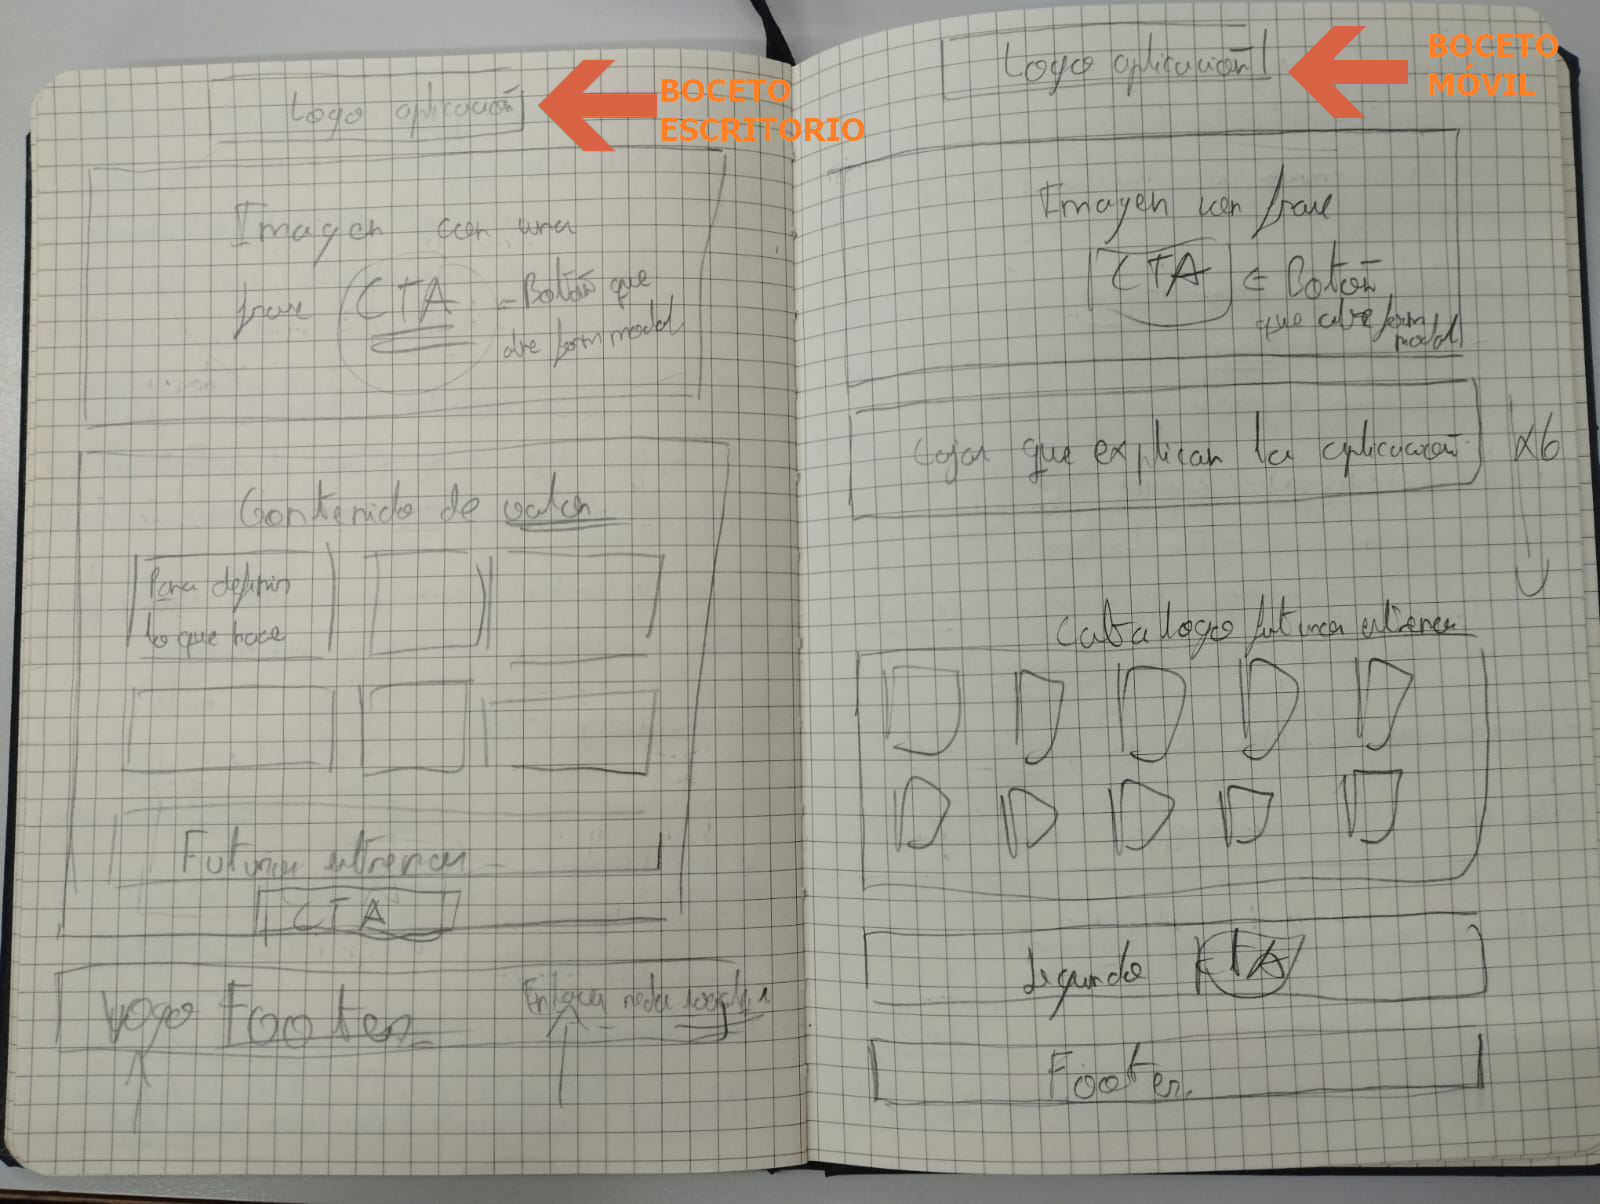 Logo aplicación
BOCETO
ESCRITORIO
Imagen con una
frase CTA = Botón que
abre form modal
Contenido de valor
Para definir
lo que hace
Futuros estrenos
CTA
Logo Footer
Enlaces redes sociales
Logo aplicación
BOCETO
MÓVIL
Imagen con frase
CTA = Botón
que abre form
modal
Cajas que explican la aplicación x6
Catalogo futuros estrenos
Segundo CTA
Footer